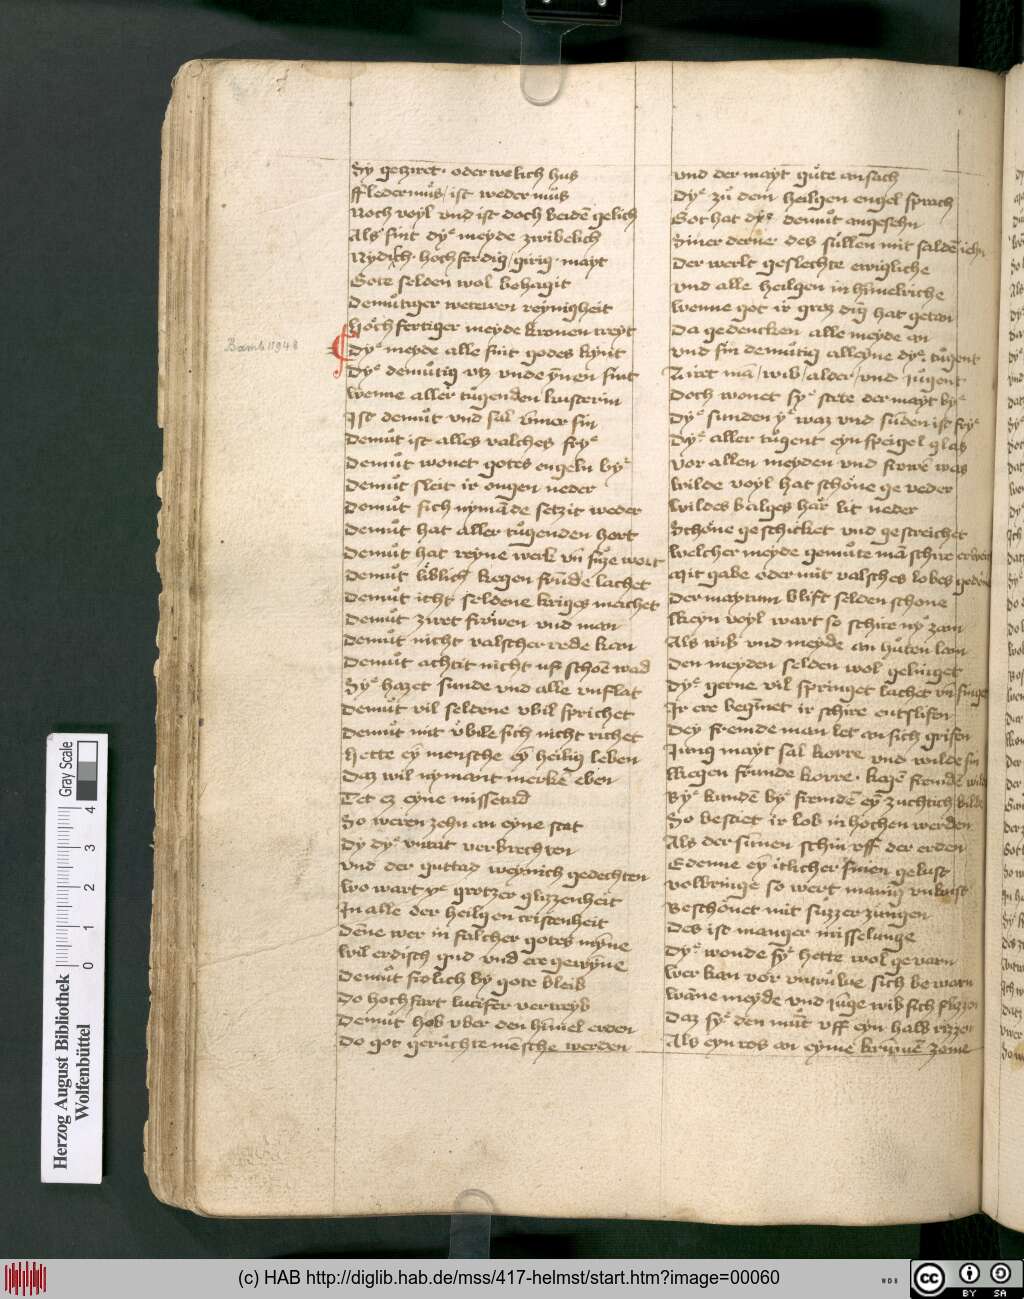 Sy getziret · oder welich hus
ffledermuͦs / ist weder mus
Noch voyl vnd ist doch beidē gelich
Als sint dyͤ meyde zwibelich
Nydisch · hochferdig / girig · mayt
Gote selden wol behagit
Demuͦtiger wetewen reynigheit
Hochfertiger meyde kronen treyt
Bamb 11948
Dyͤ meyde alle sint godes kynt
Dyͤ demuͦtig vtz vnde ynen sint
Wenne aller tuͦgenden lusterin
Ist demuͦt vnd sal vm̄er sin
Demuͦt ist alles valsches fryͤ
Demuͦt wonet gotes engeln byͤ
Demuͦt sleit ir ougen neder
Demuͦt sich nymāde setzit weder
Demuͦt hat aller tuͦgenden hort
Demuͦt hat reyne werk vn̄ suͤze wort
Demuͦt liblich kegen frunde lachet
Demuͦt icht seldene kriges machet
Demuͦt ziret frowen vnd man
Demuͦt nicht valscher rede kan
Demuͦt achtit nicht uff schoē wad
Syͤ hazet sunde vnd alle vnflat
Demuͦt vil seldene vbil sprichet
Demuͦt mit vbile sich nicht richet
Hette ey mensche ey heilig leben
Daz wil nymant merkē eben
Tet ez eyne missetad
So weren zehn an eyne stat
Dy dyͤ vntat verbrechten
Vnd der guttad weynich gedechten
Wo wart yͤ grotzer glizzenheit
In alle der heilgen cristenheit
Dēne wer in falscher gotes myne
Wil erdisch gud vnd ere gewyne
Demuͦt frolich by gote bleib
Do hochfart lucifer vertreyb
Demuͦt hob vber den himel erden
Do got geruchte mēsche werden
Vnd der mayt guͦte ansach
Dyͤ zuͦ dem heilgen engel sprach
Got hat dyͤ demuͦt angesehn
Siner derner des sullen mit saldē iehn
Der werlt geslechte ewigliche
Vnd alle heilgen in himelriche
Wenne got ir groz ding hat getan
Da gedencken alle meyde an
Vnd sin demuͦtig alleyne dyͤ tuͦgent
Ziret mā / wib / alder / vnd iuͦgent
Doch wonet syͤ stete der mayt byͤ
Dyͤ sunden yͤ waz vnd suͦden ist fryͤ
Dyͤ aller tuͦgent eyn speigel glas
Vor allen meyden vnd frowē was
Wilde voyl hat schone ge veder
Wildes balges har lit neder
Schone geschicket vnd gestreichet
Welcher meyde gemuͦte mā schire erweichet
Mit gabe oder mit valsches lobes gedone
Der maytum blift selden schone
Kleyn voyl wart so schire nyͦ zam
Als wib vnd meyde an huͦten lam
Den meyden selden wol gelinget
Dyͤ gerne vil springet lachet vn̄ singet
Ir ere begīnet ir schire entslifen
Dey fremde man let an sich grifen
Iung mayt sal korre vnd wilde sin
Kegen frunde korre · kegē fremdē wild
Byͤ kundē byͤ fremdē ey zuchtich bilde
So bestet ir lob in hochen werden
Als der sunnen schin vff der erden
E denne ey itlicher sinen gelust
Volbringe so wert manig vnkust
Beschonet mit suͦzzer zungen
Des ist manger misselunge
Dyͤ wonde syͤ hette wol gevarn
Wer kan vor vntruͦwe sich bewarn
Wāne meyde vnd iuͦge wib sich flizzen
Daz syͤ den muͦt vff eyn halb rizzen
Als eyn ros an eyme krummē zome
Gray Scale
0 1 2 3 4
Herzog August Bibliothek
Wolfenbüttel
(c) HAB http://diglib.hab.de/mss/417-helmst/start.htm?image=00060
WDB
cc
BY SA